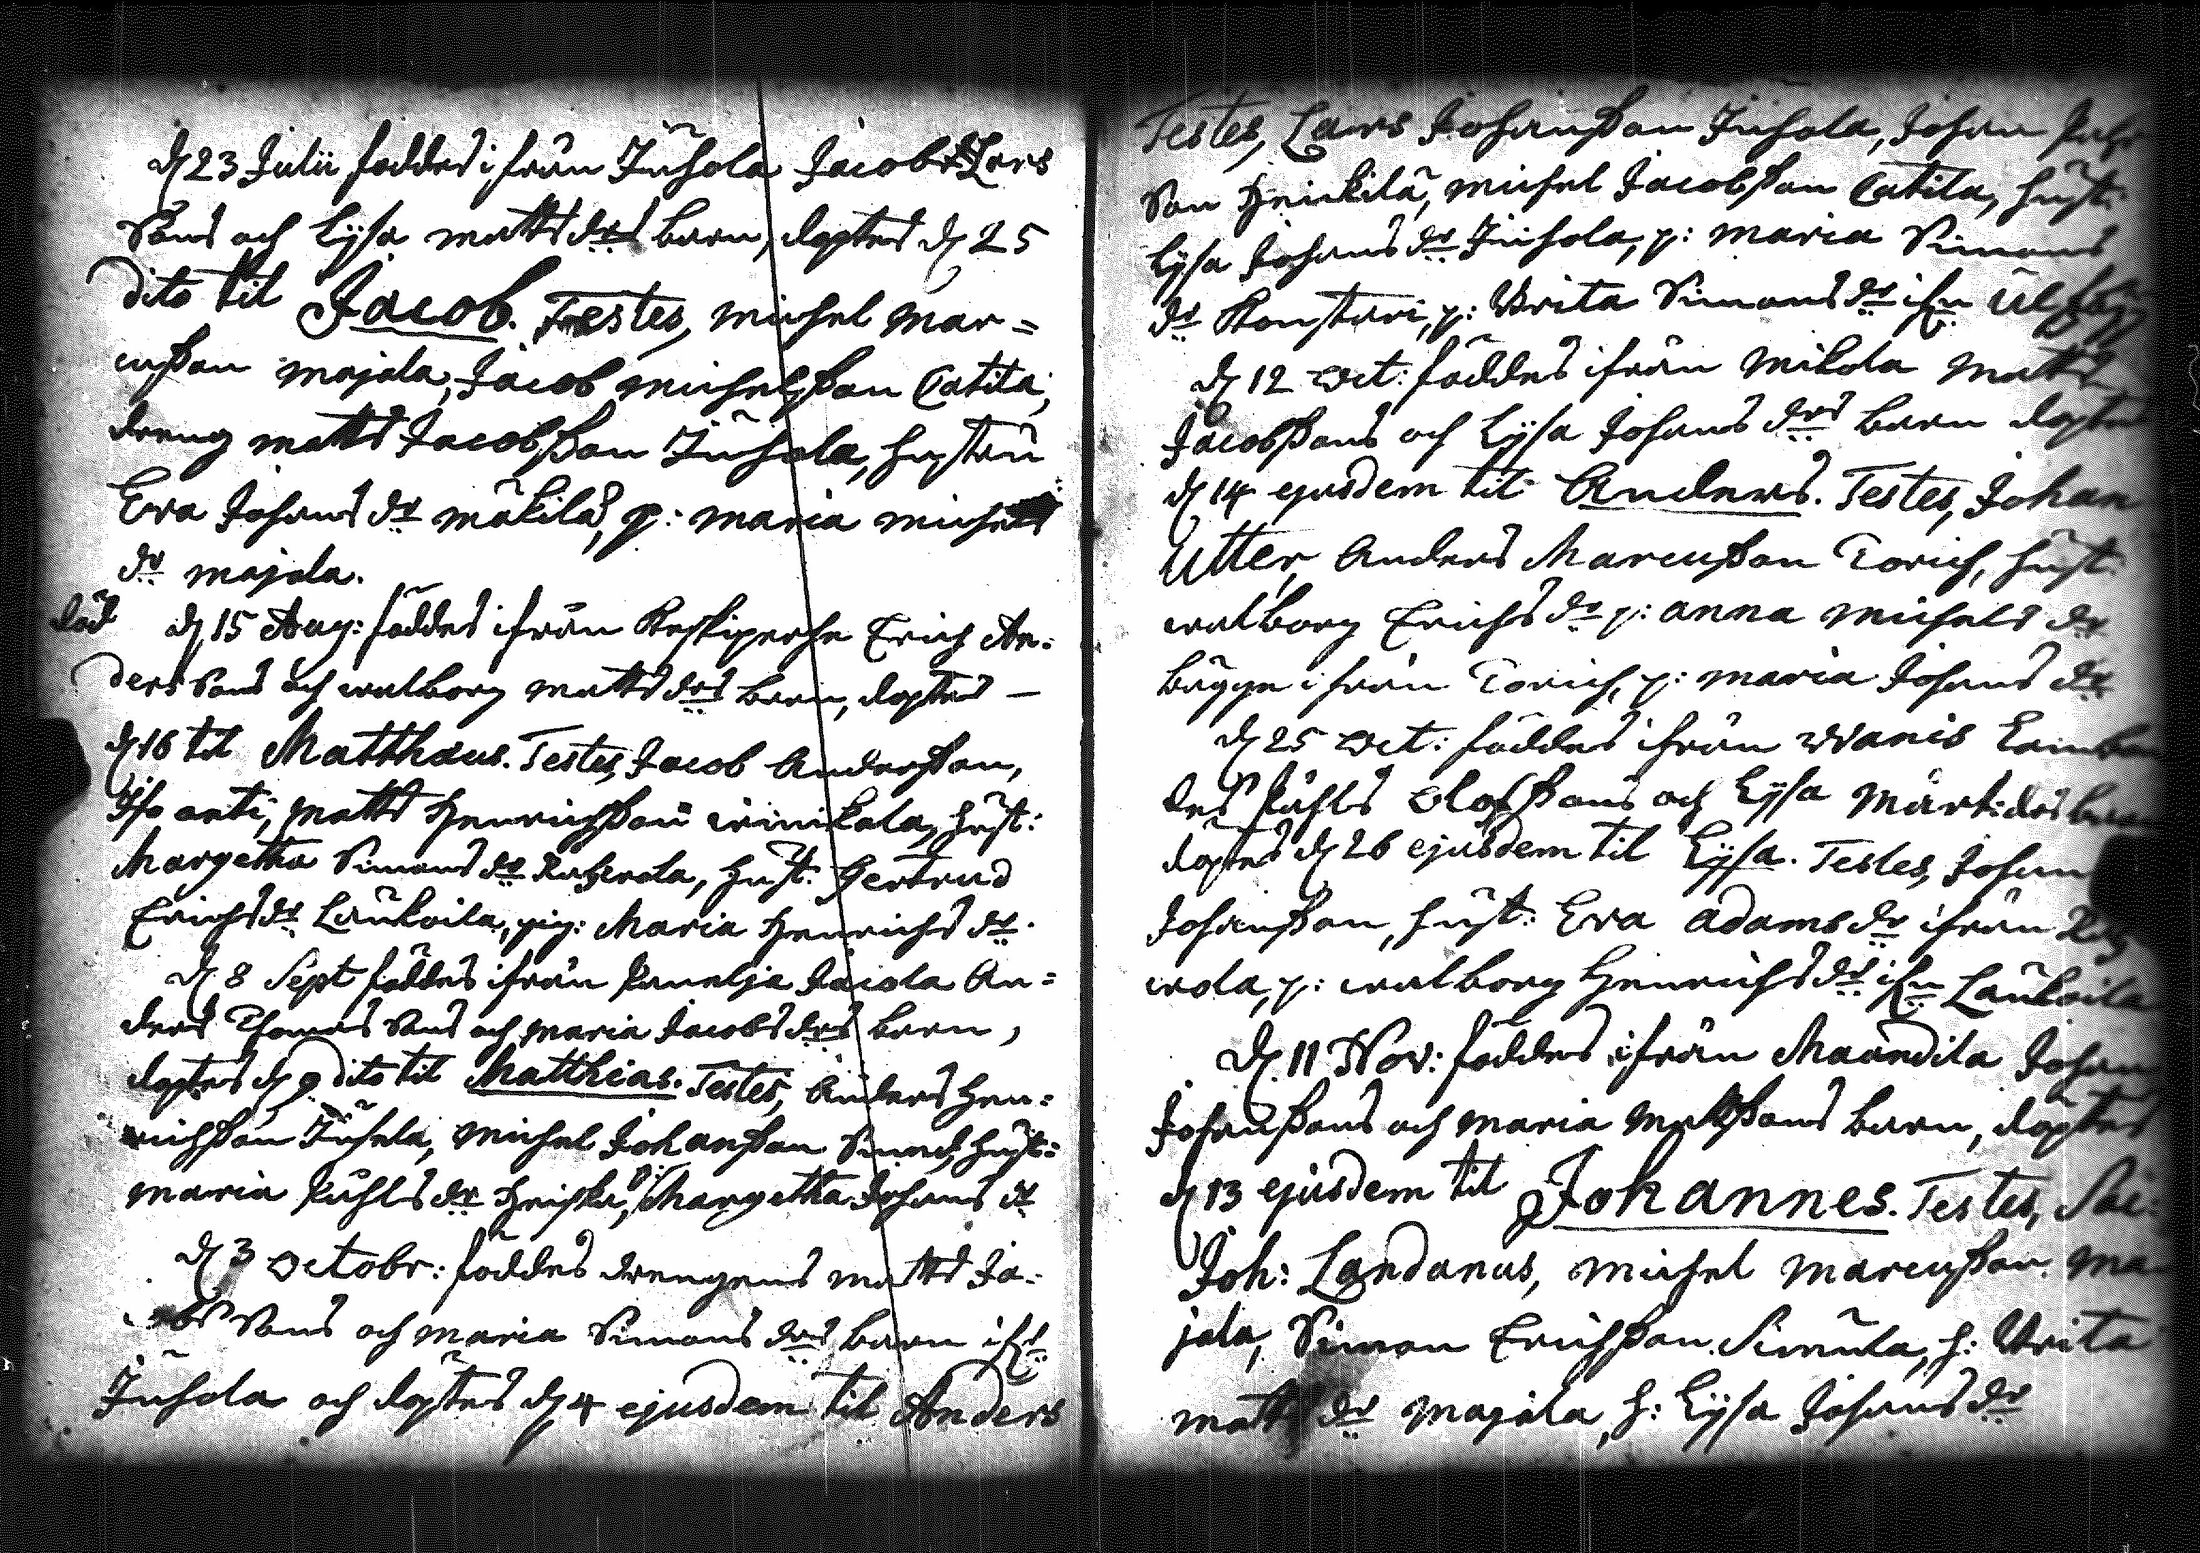 d 23 Julii föddes ifrån Juhola Jacob Lars
Sons och Lysa matts drs barn, döptes d 25
dito til Jacob. Testes, michel mar=
cusson majala, Jacob michelsson Catila,
dreng matts Jacobsson Juhola, hustru
Eva Johans dr mäkilä, p: maria michels
dr majala.
död d 15 Aug: föddes ifrån Keskiperhe Erich An:
ders Sons och walborg matts drs barn, döptes —
d 16 til Matthæus. Testes, Jacob Andersson,
Iso anti, matts Henrichsson hust:
Margetha Simons dr hust: Gertrud
Erichs dr Laukoila, pig: Maria Henrichs dr.
d 8 Sept föddes ifrån Panelja An=
ders Thomas Sons och maria Jacobs drs barn,
döptes d 9 dito til Matthias. Testes, Anders Hen=
richsson Juhola, michel Johansson hust:
maria Påhls dr Margetha Johans dr
d 3 Octobr: föddes drengens matts Ja:
cobs Sons och maria Simons drs barn ifn
Juhola och döptes d 4 ejusdem til Anders
Testes, Lars Johansson Juhola, Johan
Son Heickilä, michel Jacobsson Catila, hust:
Lysa Johans dr Juhola, p: maria Simons
dr Konstari, p: Brita Simons dr ifn
d 12 Oct: föddes ifrån mikola matts
Jacobssons och Lysa Johans drs barn döptes
d 14 ejusdem til Anders. Testes, Johan
Utter, Anders Marcusson Torich, hust:
walborg Erichs dr p: anna michels dr
bägge ifrån Torich, p: maria Johans dr
d 25 Oct: föddes ifrån
des Påhls Olofssons och Lysa Märt: drs barn
döptes d 26 ejusdem til Lysa. Testes, Johan
Johansson, hust: Eva adams dr ifrån
rola, p: walborg Henrichs dr ifn Laukoila
d. 11 Nov: föddes ifrån Maandila Johan
Johanssons och maria mattssons barn, döptes
d 13 ejusdem til Johannes. Testes,
Joh: Landanus, michel marcusson ma
jala, Simon Erichsson Simula, h: Brita
matts dr majala, h: Lysa Johans dr